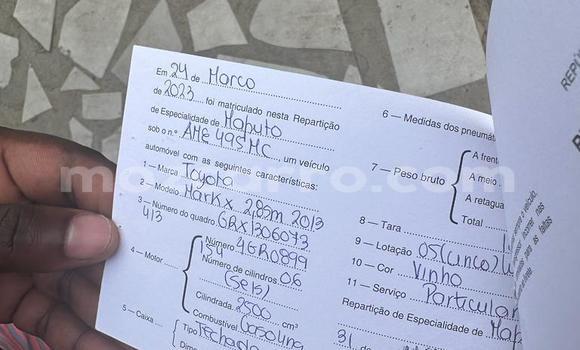 Em 24 de Março
de 2023 foi matriculado nesta Repartição
de Especialidade de Maputo
sob o n.º AME 495 MC, um veículo
automóvel com as seguintes características:
1 — Marca Toyota
2 — Modelo Mark x 2013
3 — Número do quadro GRX1306073
413
4 — Motor
Número 4GR0899
54
Número de cilindros 06
(Seis)
Cilindrada 2500 cm³
Combustível Gasolina
5 — Caixa
Tipo Fechada
6 — Medidas dos pneumát
A frent
7 — Peso bruto
A meio
A retagua
Total
8 — Tara
9 — Lotação 05 (cinco) L
10 — Cor Vinho
11 — Serviço Particular
Repartição de Especialidade de Map
31 de